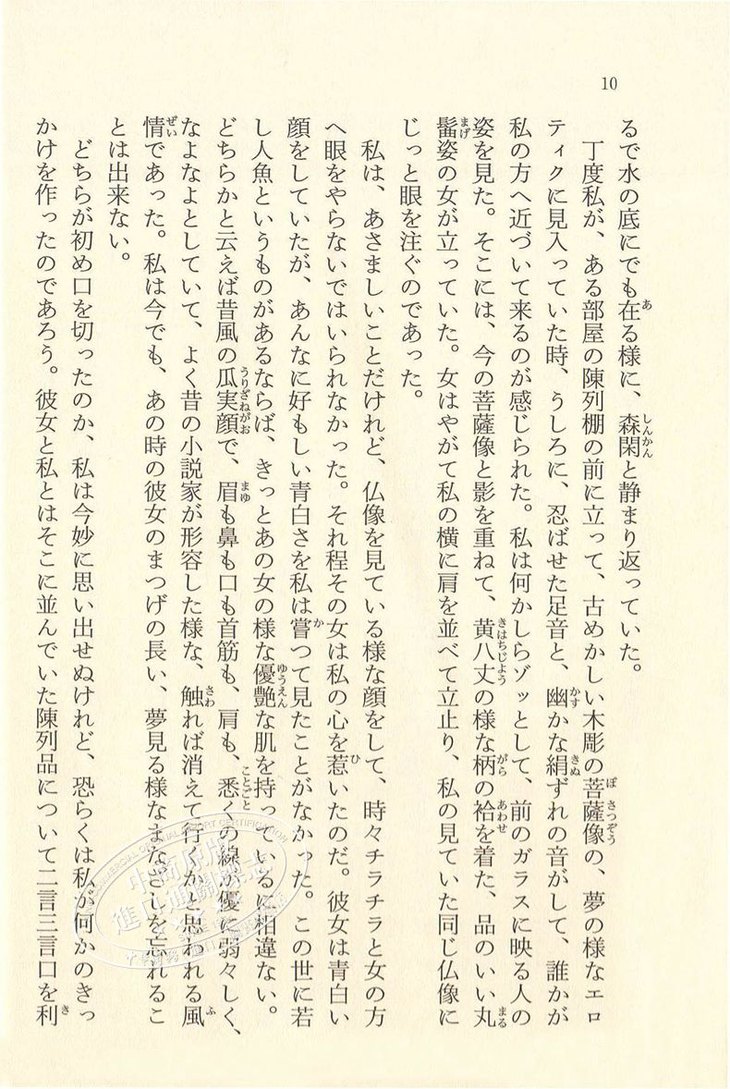 10
るで水の底にでも在る様に、森閑と静まり返っていた。
　丁度私が、ある部屋の陳列棚の前に立って、古めかしい木彫の菩薩像の、夢の様なエロ
ティクに見入っていた時、うしろに、忍ばせた足音と、幽かな絹ずれの音がして、誰かが
私の方へ近づいて来るのが感じられた。私は何かしらゾッとして、前のガラスに映る人の
姿を見た。そこには、今の菩薩像と影を重ねて、黄八丈の様な柄の袷を着た、品のいい丸
髷姿の女が立っていた。女はやがて私の横に肩を並べて立止り、私の見ていた同じ仏像に
じっと眼を注ぐのであった。
　私は、あさましいことだけれど、仏像を見ている様な顔をして、時々チラチラと女の方
へ眼をやらないではいられなかった。それ程その女は私の心を惹いたのだ。彼女は青白い
顔をしていたが、あんなに好もしい青白さを私は嘗つて見たことがなかった。この世に若
し人魚というものがあるならば、きっとあの女の様な優艶な肌を持っているに相違ない。
どちらかと云えば昔風の瓜実顔で、眉も鼻も口も首筋も、肩も、悉くの線が優に弱々しく、
なよなよとしていて、よく昔の小説家が形容した様な、触れば消えて行くかと思われる風
情であった。私は今でも、あの時の彼女のまつげの長い、夢見る様なまなざしを忘れるこ
とは出来ない。
　どちらが初め口を切ったのか、私は今妙に思い出せぬけれど、恐らくは私が何かのきっ
かけを作ったのであろう。彼女と私とはそこに並んでいた陳列品について二言三言口を利